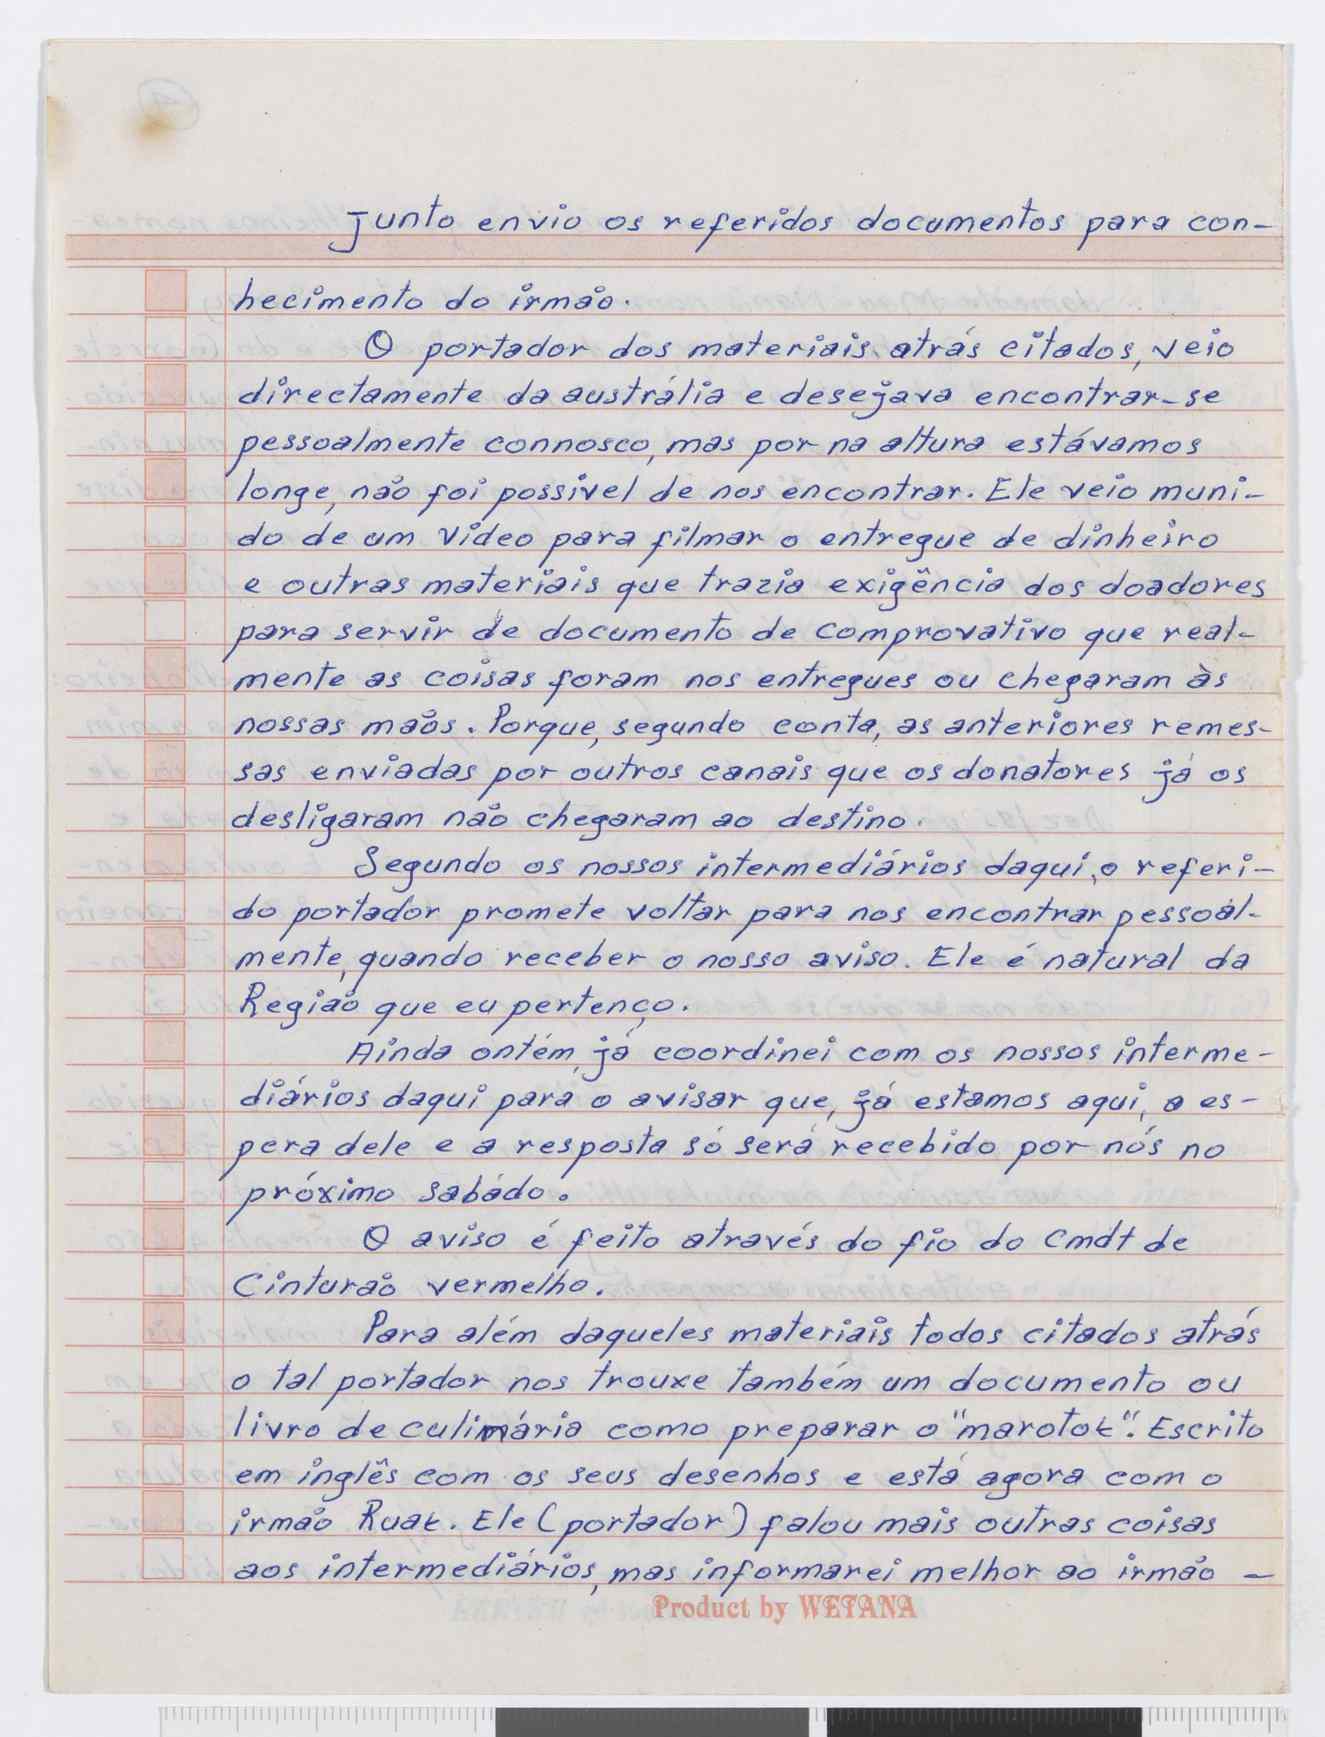 Junto envio os referidos documentos para con-
hecimento do irmão.
O portador dos materiais atrás citados, veio
directamente da austrália e desejava encontrar-se
pessoalmente connosco, mas por na altura estávamos
longe, não foi possivel de nos encontrar. Ele veio muni-
do de um video para filmar o entregue de dinheiro
e outras materiais que trazia exigência dos doadores
para servir de documento de comprovativo que real-
mente as coisas foram nos entregues ou chegaram às
nossas maõs. Porque, segundo conta, as anteriores remes-
sas enviadas por outros canais que os donatores já os
desligaram não chegaram ao destino.
Segundo os nossos intermediários daqui, o referi-
do portador promete voltar para nos encontrar pessoal-
mente, quando receber o nosso aviso. Ele é natural da
Região que eu pertenço.
Ainda ontém, já coordinei com os nossos interme-
diários daqui para o avisar que, já estamos aqui, a es-
pera dele e a resposta só será recebido por nós no
próximo sabádo.
O aviso é feito através do fio do Cmdt de
Cinturão vermelho.
Para além daqueles materiais todos citados atrás
o tal portador nos trouxe também um documento ou
livro de culinária como preparar o "marotok". Escrito
em inglês com os seus desenhos e está agora com o
irmão Ruak. Ele (portador) falou mais outras coisas
aos intermediários, mas informarei melhor ao irmão -
Product by WETANA